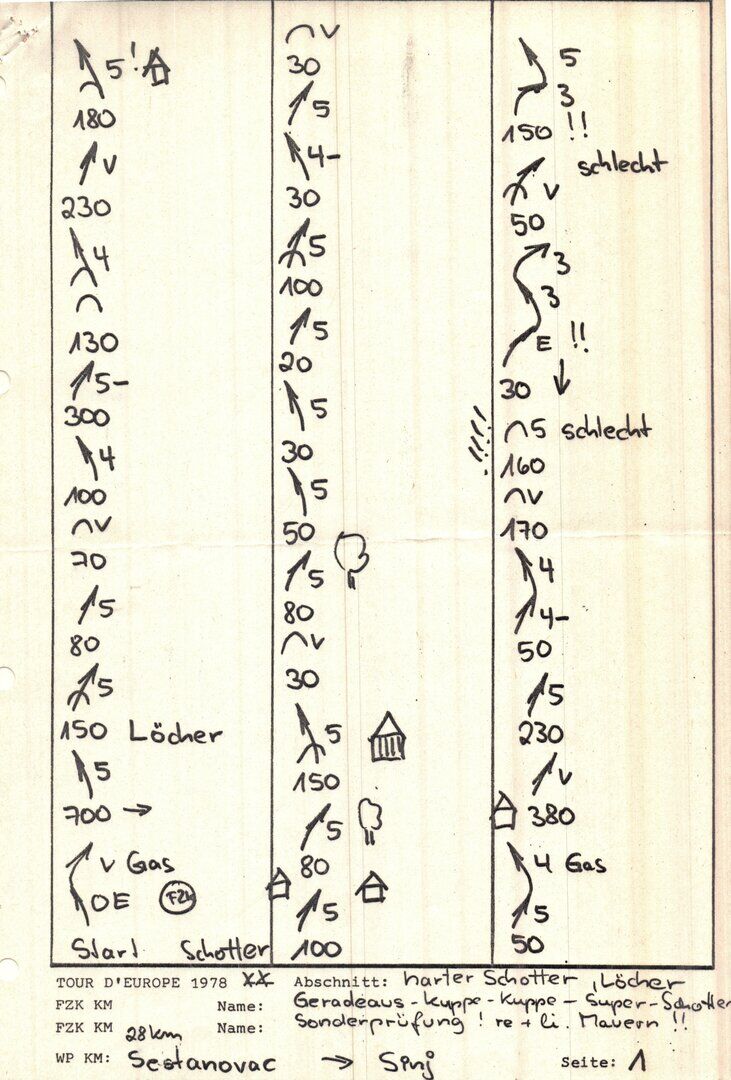 5!
180
v
230
4
130
5-
300
4
100
v
70
5
80
5
150 Löcher
5
700 →
v Gas
OE FZK
Start Schotter
v
30
5
4-
30
5
100
5
20
5
30
5
50
5
80
v
30
5
150
5
80
5
100
5
3
150 !!
schlecht
v
50
3
3
E !!
30 ↓
5 schlecht
160
v
170
4
4-
50
5
230
v
380
4 Gas
5
50
TOUR D'EUROPE 1978 Abschnitt: harter Schotter, Löcher
FZK KM Name: Geradeaus-Kuppe-Kuppe-Super-Schotter
FZK KM 28km Name: Sonderprüfung! re + li. Mauern !!
WP KM: Sestanovac → Sinj Seite: 1